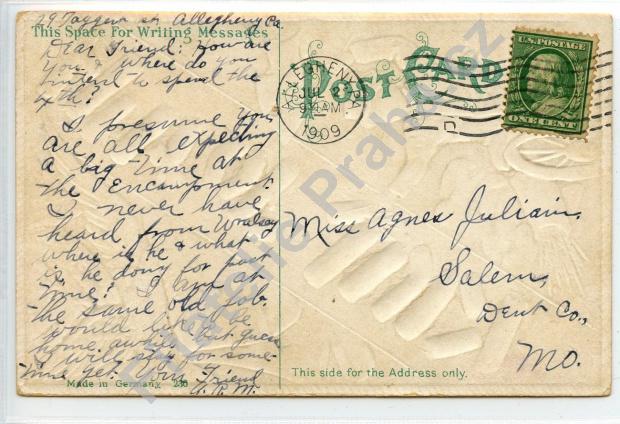 29 Taggert st Allegheny Pa.
This Space For Writing Messages
Dear Friend: How are
you & where do you
intend to spend the
4th?
I presume you
are all expecting
a big time at
the Encampment.
I never have
heard from
where is he & what
is he doing for past
time? I am at
the same old job.
would like to be
home awhile but guess
I will stay for some-
time yet. Your Friend
Made in Germany 230
POST CARD
ALLEGHENY, PA
JUL
9 30 AM
1909
U.S. POSTAGE
ONE CENT
Miss Agnes Juliain,
Salem,
Dent Co.,
Mo.
This side for the Address only.